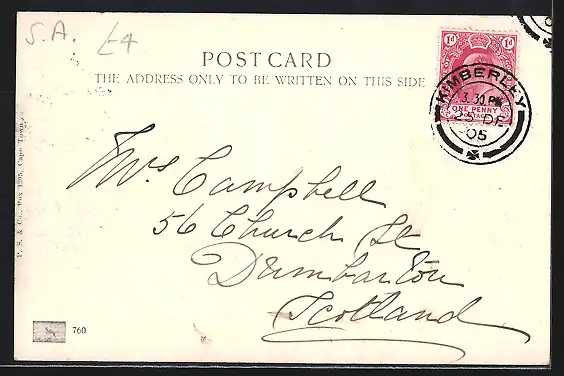 S.A. £4
POST CARD
THE ADDRESS ONLY TO BE WRITTEN ON THIS SIDE
1d 1d
ONE PENNY
POSTAGE
KIMBERLEY
3.30 PM
25 DE
05
Mrs Campbell
56 Church St
Dumbarton
Scotland
P. S. & Co., Box 1205, Cape Town.
760